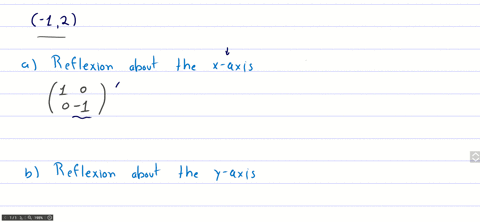 (-1,2)
a) Reflexion about the x-axis
( 1 0
0 -1 )
b) Reflexion about the y-axis